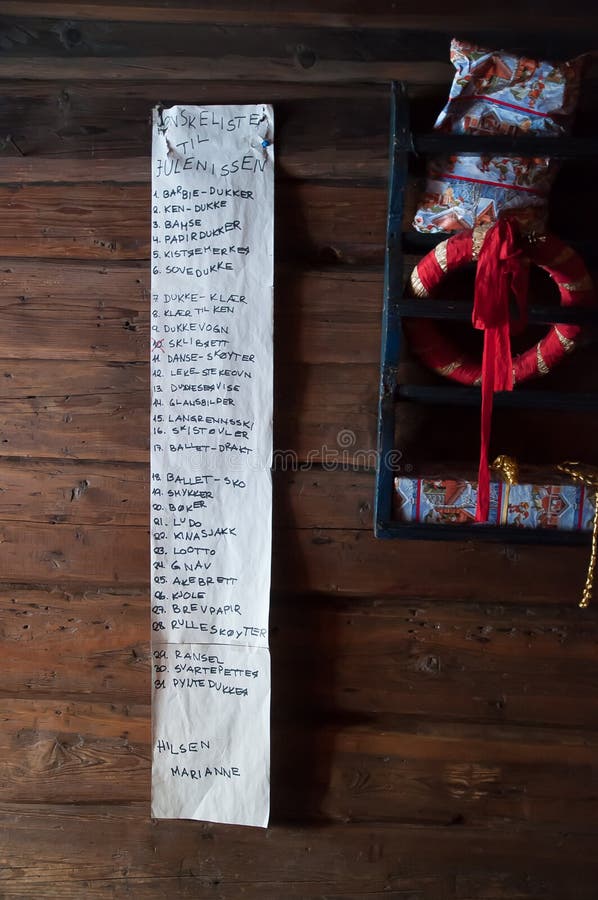 ØNSKELISTE
TIL
JULENISSEN
1. BARBIE-DUKKER
2. KEN-DUKKE
3. BAMSE
4. PAPIRDUKKER
5. KISTREMERKES
6. SOVEDUKKE
7. DUKKE-KLÆR
8. KLÆR TIL KEN
9. DUKKEVOGN
10. SKLIBRETT
11. DANSE-SKØYTER
12. LEKE-STEKEOVN
13.
14. GLANSBILDER
15. LANGRENNSSKI
16. SKISTØVLER
17. BALLET-DRAKT
18. BALLET-SKO
19. SMYKKER
20. BØKER
21. LUDO
22. KINASJAKK
23. LOOTTO
24. GNAV
25. AKEBRETT
26. KJOLE
27. BREVPAPIR
28. RULLESKØYTER
29. RANSEL
30. SVARTEPETTES
31 PYNTEDUKKES
HILSEN
MARIANNE
dreamstime